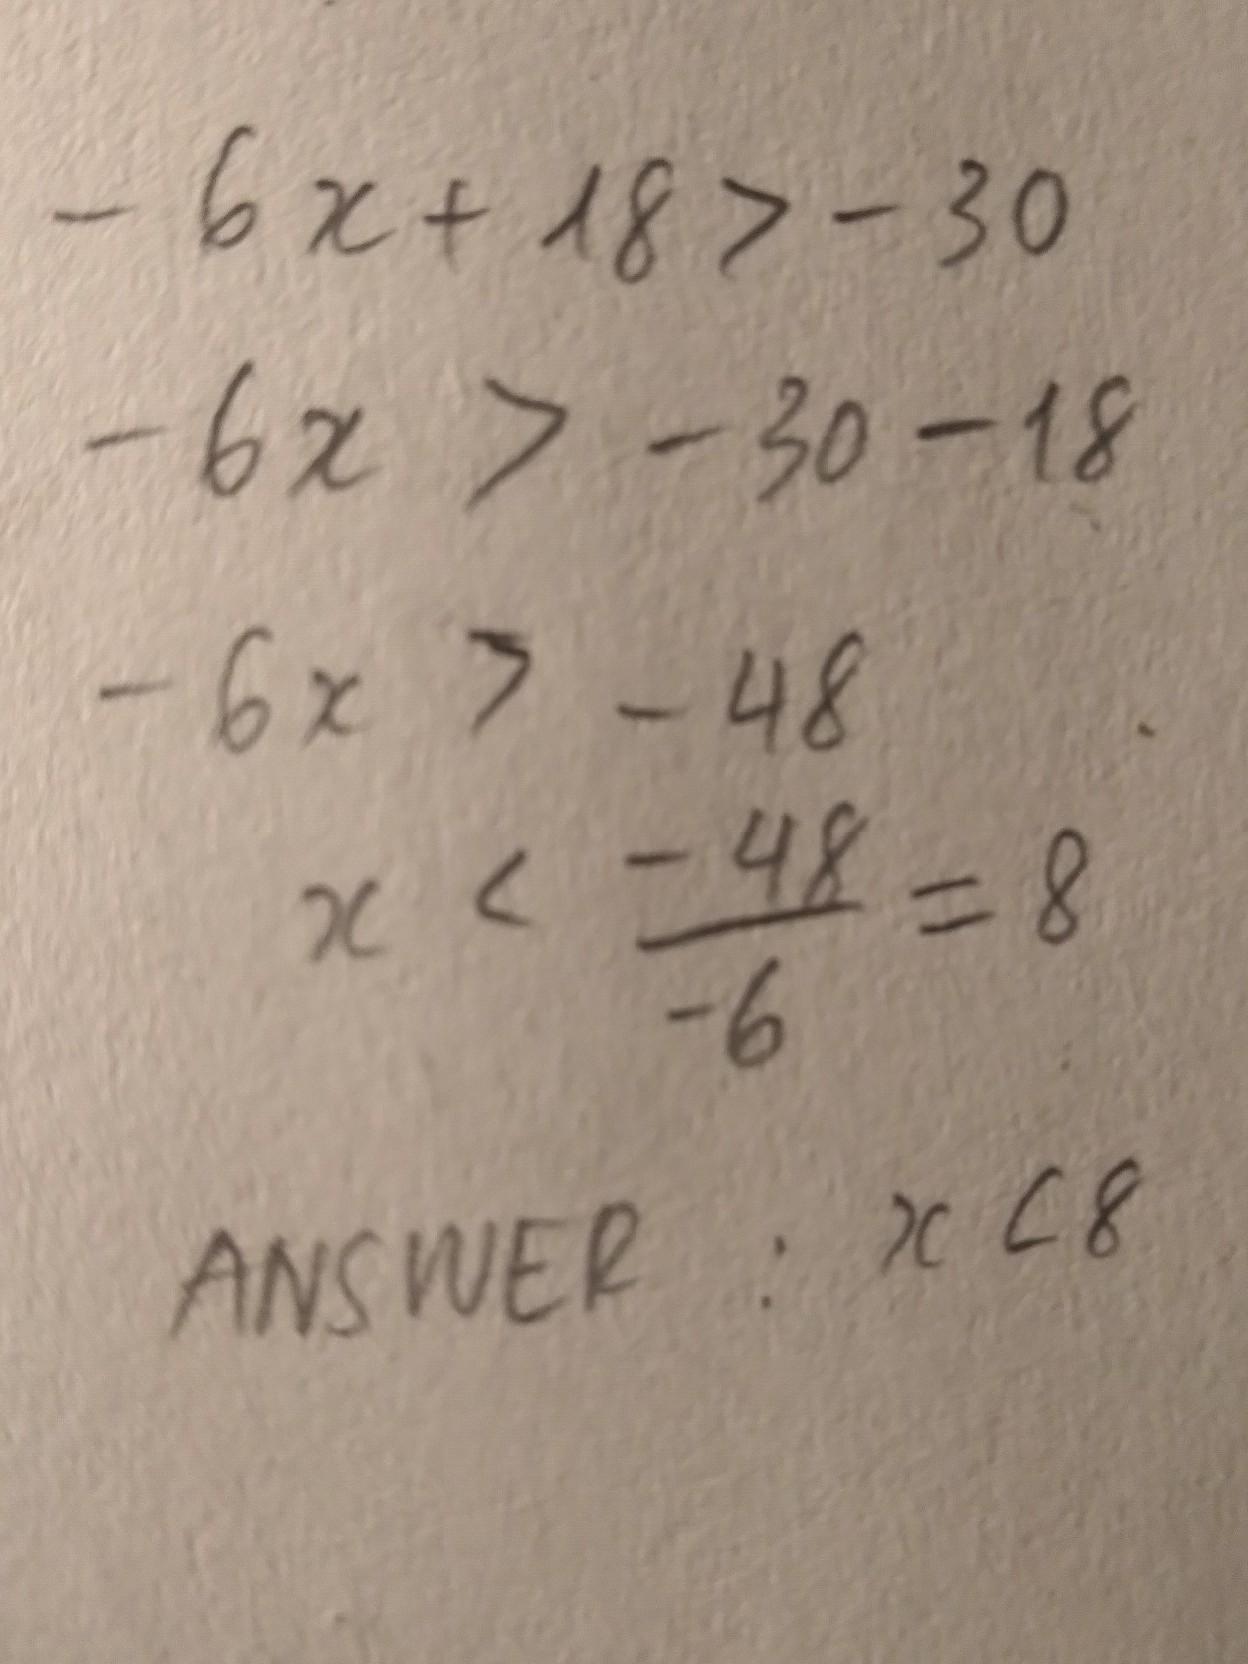 - 6x + 18 > - 30
- 6x > - 30 - 18
- 6x > - 48
x < - 48 / - 6 = 8
ANSWER : x < 8